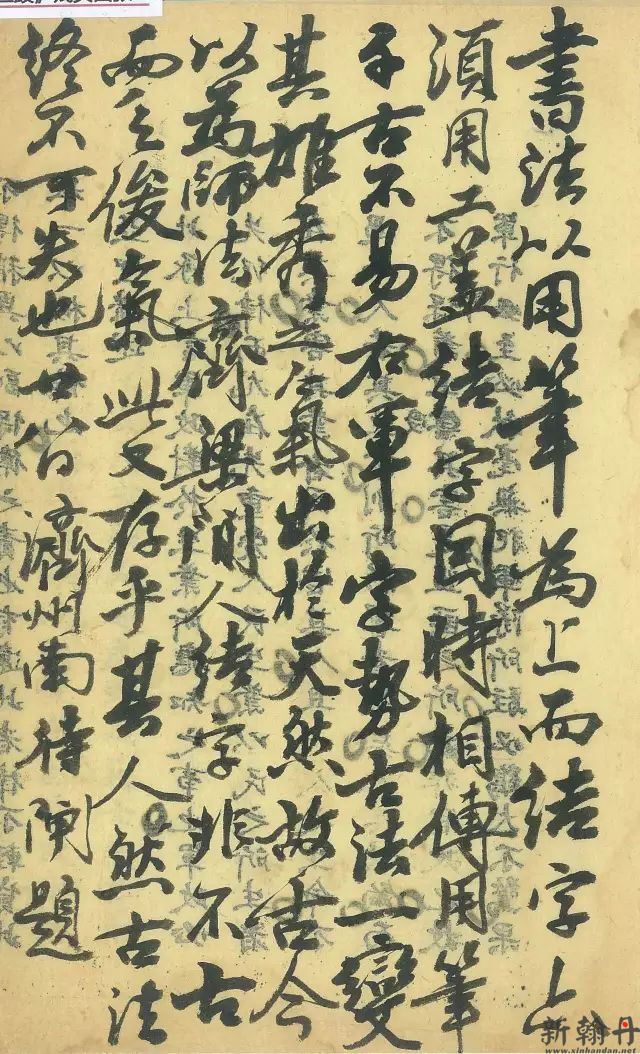 書法以用筆為上而結字亦
須用工盖結字因時相傳用筆
千古不易右軍字勢古法一變
其雄秀之氣出於天然故古今
以為師法齊梁間人結字非不古
而乏俊氣此又存乎其人然古法
終不可失也廿八日濟州南待閘題
新翰丹
www.xinhandan.net